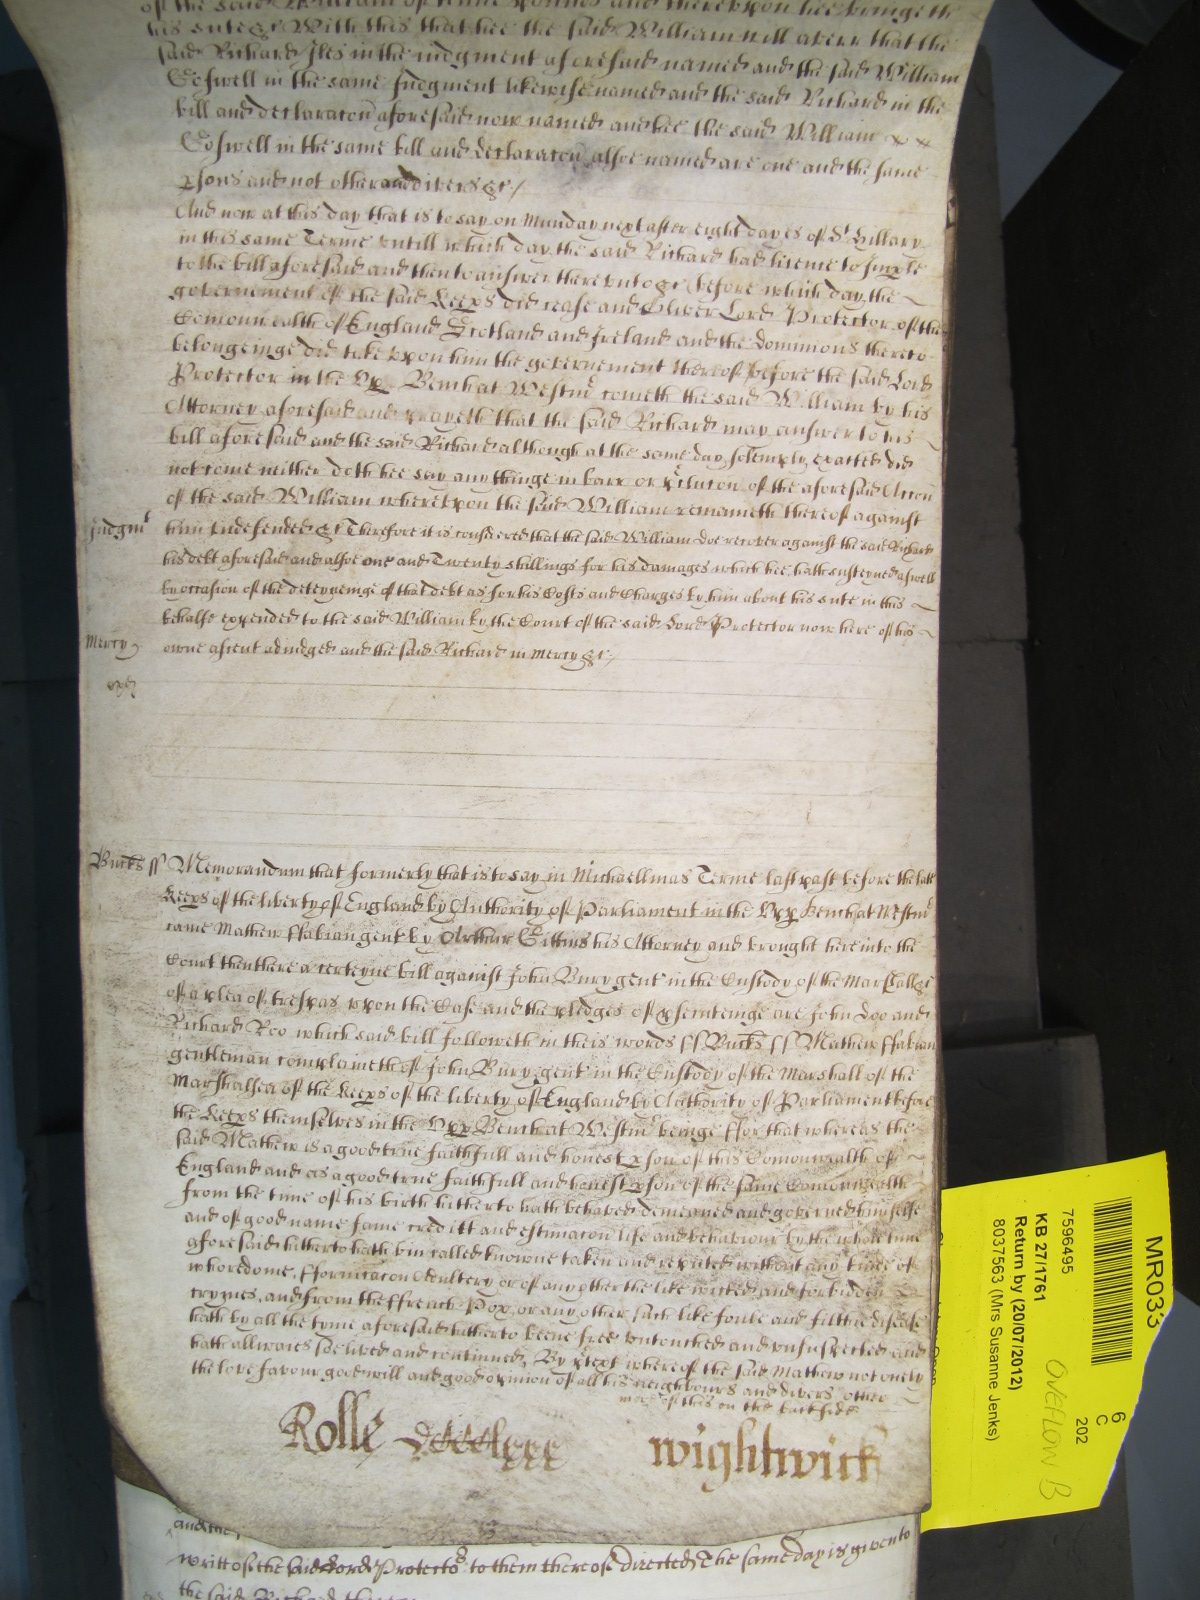 of the said William of Tenne Pounds and thereupon hee bringeth
his sute &c With this that hee the said William will averr that the
said Richard Iles in the judgment aforesaid named and the said William
Coswell in the same Judgment likewise named and the said Richard in the
bill and declaracon aforesaid now named and hee the said William x x
Coswell in the same bill and declaracon alsoe named are one and the same
psons and not other and divers &c/
And now at this day that is to say on Munday next after eight dayes of St Hillary
in this same Terme untill which day the said Richard had licence to Imple
to the bill aforesaid and then to answer thereunto &c before which day the
governement of the said Keeps did cease and Oliver Lord Protector of the
Comonwealth of England Scotland and Ireland and the dominions thereto
belongeinge did take upon him the governement thereof before the said Lord
Protector in the Upp Bench at Westmr cometh the said William by his
Attorney aforesaid and prayeth that the said Richard may answer to his
bill aforesaid and the said Richard although at the same day solemply exacted did
not come neither doth hee say any thinge in barr or pclucon of the aforesaid Accon
of the said William whereupon the said William remaineth thereof against
Judgmt him Undefended &c Therefore it is considered that the said William doe recover against the said Richard
his debt aforesaid and alsoe one and Twenty shillings for his damages which hee hath susteyned aswell
by occasion of the deteyneinge of that debt as for his Costs and Charges by him about his sute in this
behalfe expended to the said William by the Court of the said Lord Protector now here of his
Mercy owne assent adiudged and the said Richard in Mercy &c/
Bucks ss Memorandum that formerly that is to say in Michaellmas Terme last past before the late
Keeps of the liberty of England by Authority of Parliament in the Upp Bench at Westmr
came Mathew ffabian gent by Arthur Gittins his Attorney and brought here into the
Court then there a certeyne bill against John Bury gent in the Custody of the Marshall &c
of a plea of trespas upon the Case and the pledges of psecuteinge are John Doo and
Richard Roo which said bill followeth in theis words ss Bucks ss Mathew ffabian
gentleman complaineth of John Bury gent in the Custody of the Marshall of the
Marshalsea of the Keeps of the liberty of England by Authority of Parliament before
the Keeps themselves in the Upp Bench at Westmr beinge ffor that whereas the
said Mathew is a good true faithfull and honest pson of this Comonwealth of
England and as a good true faithfull and honest pson of the same Comonwealth
from the time of his birth hitherto hath behaved demeaned and governed himselfe
and of good name fame creditt and estimacon life and behaviour by the whole time
aforesaid hitherto hath bin called knowne taken and reputed without any kinde of
whoredome, fformicacon Adultery or of any other the like wicked and forbidden
crymes, and from the ffrench Pox, or any other such like foule and filthie disease
hath by all the tyme aforesaid hitherto beene free untouched and unsuspected and
hath allwaies soe lived and continued, By ptext whereof the said Mathew not onely
the love favour good will and good opinion of all his neighbours and divers other
more of this on the backside
Rolle wightwick
writt of the said Lord Protector to them thereof directed, The same day is given to
the said Richard
MR033
6
C
202
7596495
KB 27/1761
Return by (20/07/2012)
8037563 (Mrs Susanne Jenks)
OVERFLOW B